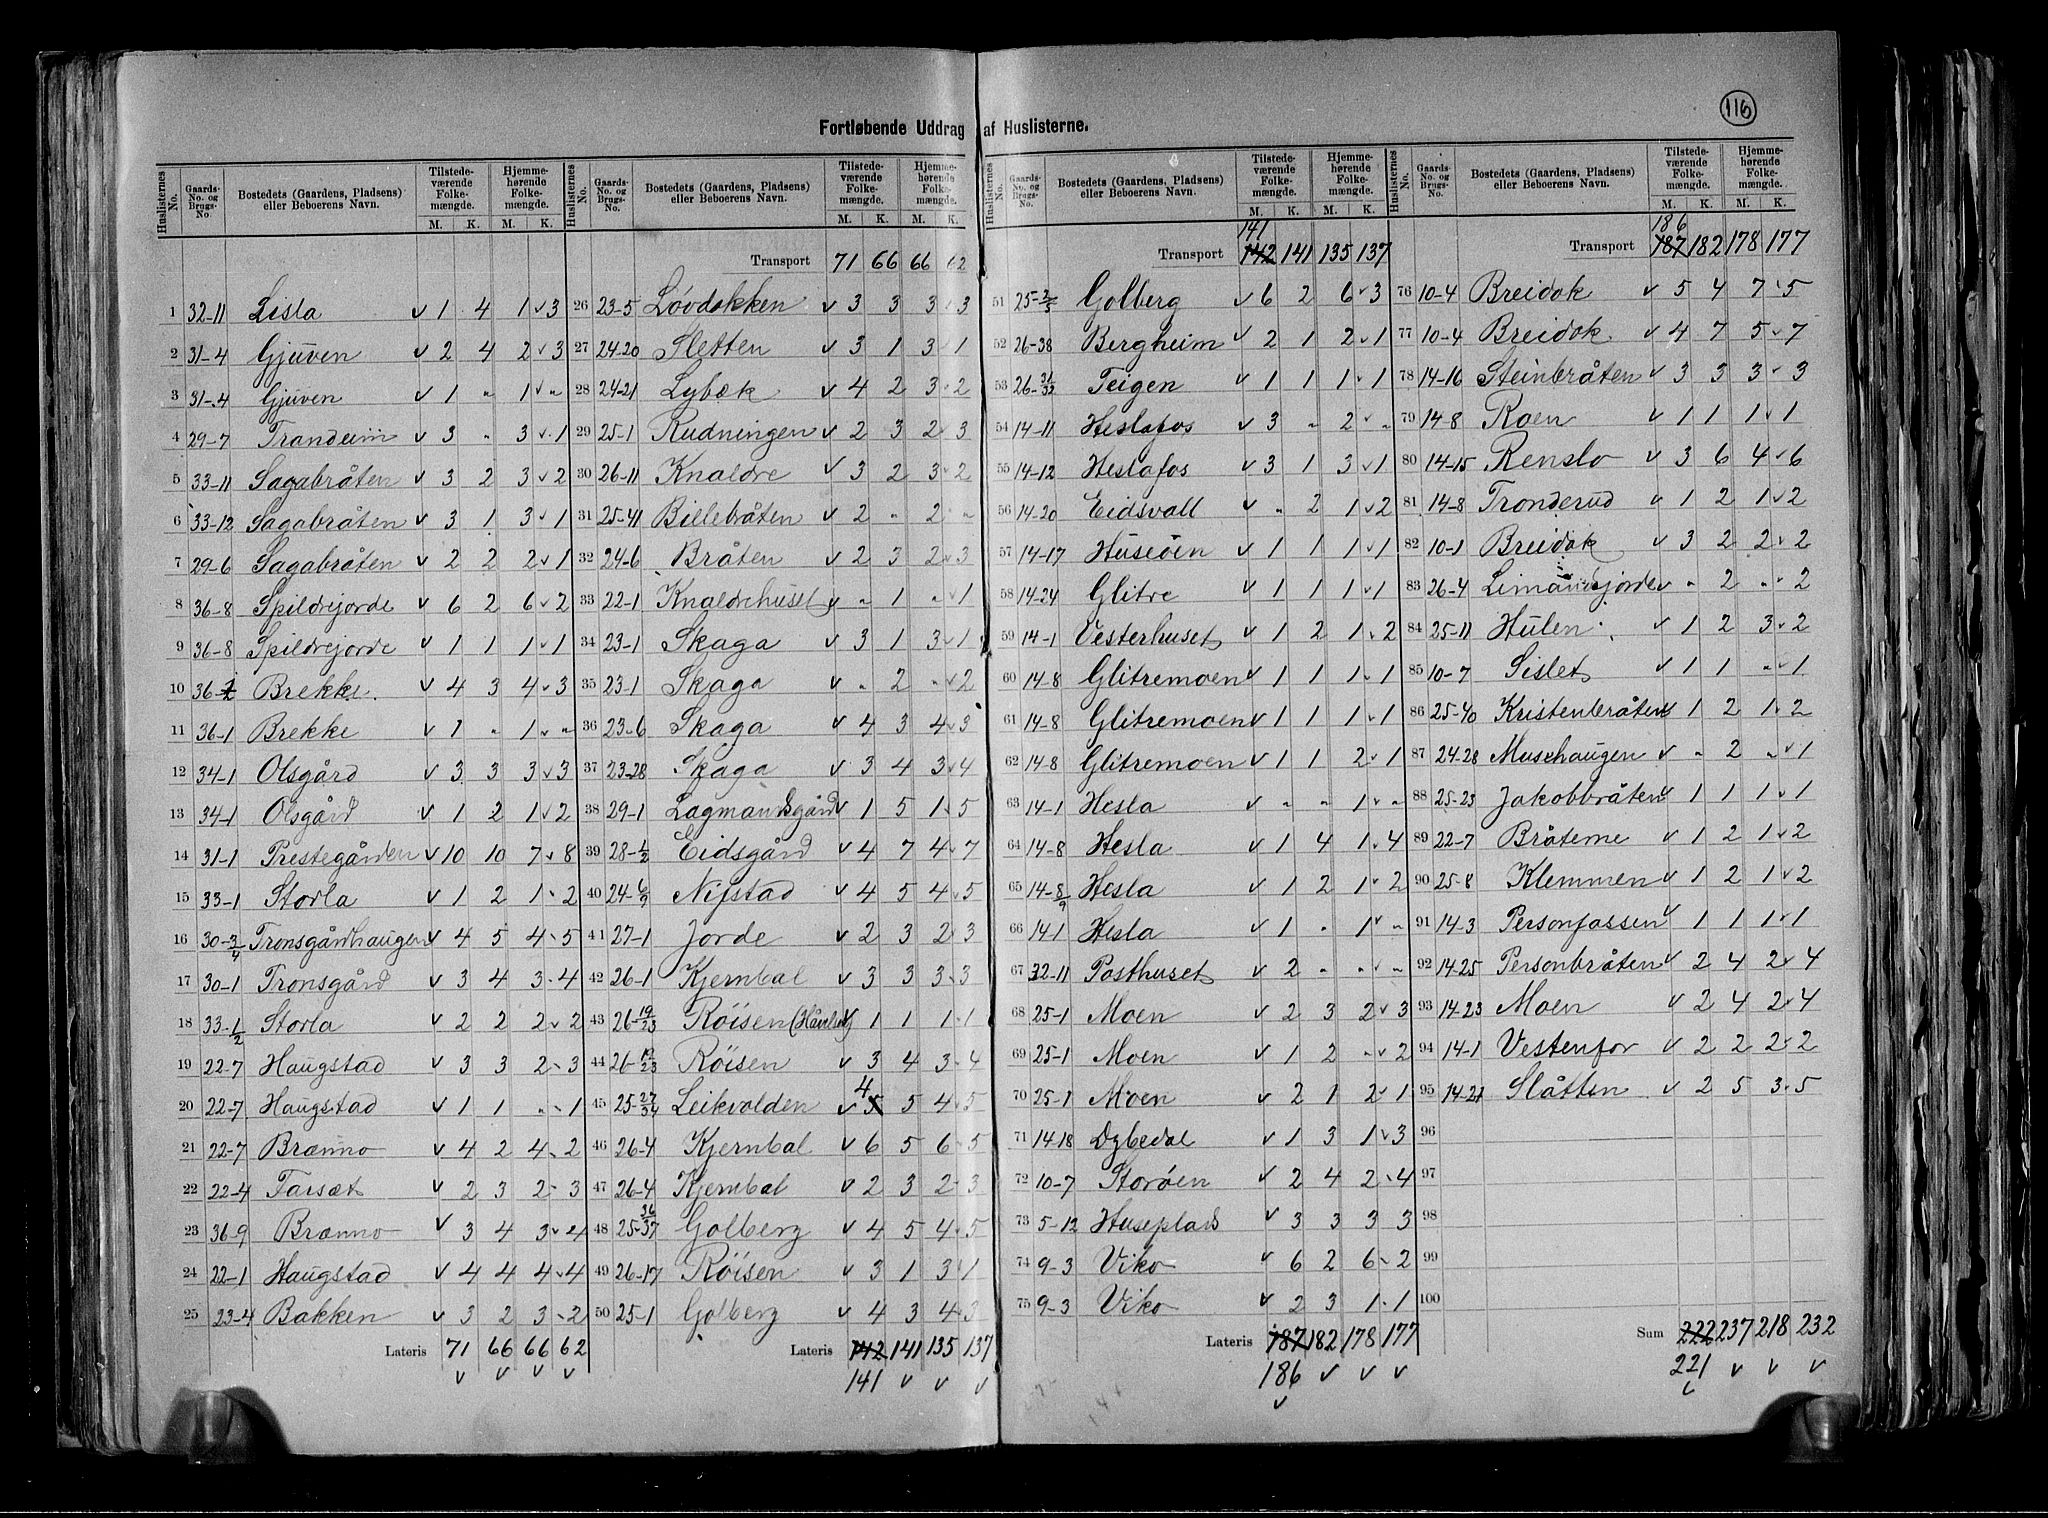 116
Fortløbende Uddrag af Huslisterne.
Huslisternes No. Gaards-No. og Brugs-No. Bostedets (Gaardens, Pladsens) eller Beboerens Navn. Tilstedeværende Folkemængde. M. K. Hjemmehørende Folkemængde. M. K.
1 32-11 Lisla v 1 4 1 v 3
2 31-4 Gjuven v 2 4 2 v 3
3 31-4 Gjuven v 1 " 1 v "
4 29-7 Trondeim v 3 " 3 v 1
5 33-11 Sagabråten v 3 2 3 v 2
6 33-12 Sagabråten v 3 1 3 v 1
7 29-6 Sagabråten v 2 2 2 v 1
8 36-8 Spildrejorde v 6 2 6 v 2
9 36-8 Spildrejorde v 1 1 1 v 1
10 Brekke v 4 3 4 v 3
11 36-1 Brekke v 1 " 1 v "
12 34-1 Olsgård v 3 3 3 v 3
13 34-1 Olsgård v 1 2 1 v 2
14 31-1 Prestegården v 10 10 7 v 8
15 33-1 Storla v 1 2 1 v 2
16 30-3/4 Tronsgårdhaugen v 4 5 4 v 5
17 30-1 Tronsgård v 3 4 3 v 4
18 33-1/2 Storla v 2 2 2 v 2
19 22-7 Haugstad v 3 3 2 v 3
20 22-7 Haugstad v 1 1 " v 1
21 22-7 Brænno v 4 2 4 v 2
22 22-4 Farsæt v 2 3 2 v 3
23 36-9 Brænno v 3 4 3 v 4
24 22-1 Haugstad v 4 4 4 v 4
25 23-4 Bakken v 3 2 3 v 2
Lateris 71 66 66 62
v v v v
Huslisternes No. Gaards-No. og Brugs-No. Bostedets (Gaardens, Pladsens) eller Beboerens Navn. Tilstedeværende Folkemængde. M. K. Hjemmehørende Folkemængde. M. K.
Transport 71 66 66 62
26 23-5 Løvdokken v 3 3 3 v 3
27 24-20 Sletten v 3 1 3 v 1
28 24-21 Lybæk v 4 2 3 v 2
29 25-1 Rudningen v 2 3 2 v 3
30 26-11 Knaldre v 3 2 3 v 2
31 25-41 Billebråten v 2 " 2 v "
32 24-6 Bråten v 2 3 2 v 3
33 22-1 Knaldrehuset v " 1 " v 1
34 23-1 Skaga v 3 1 3 v 1
35 23-1 Skaga v " 2 " v 2
36 23-6 Skaga v 4 3 4 v 3
37 23-28 Skaga v 3 4 3 v 4
38 29-1 Lagmandsgård v 1 5 1 v 5
39 28-1/2 Eidsgård v 4 7 4 v 7
40 24-6/9 Nystad v 4 5 4 v 5
41 27-1 Jorde v 2 3 2 v 3
42 26-1 Kjernbal v 3 3 3 v 3
43 26-19/23 Røisen v 1 1 1 v 1
44 26-19/23 Røisen v 3 4 3 v 4
45 25-27/34 Leikvolden v 4 5 5 4 v 5
46 26-4 Kjernbal v 6 5 6 v 5
47 26-4 Kjernbal v 2 3 2 v 3
48 25-36/37 Golberg v 4 5 4 v 5
49 26-17 Røisen v 3 1 3 v 1
50 25-1 Golberg v 4 3 4 v 3
Lateris 142 141 135 137
141 v v v
Huslisternes No. Gaards-No. og Brugs-No. Bostedets (Gaardens, Pladsens) eller Beboerens Navn. Tilstedeværende Folkemængde. M. K. Hjemmehørende Folkemængde. M. K.
141
Transport 142 141 135 137
51 25-3/5 Golberg v 6 2 6 v 3
52 26-38 Bergheim v 2 1 2 v 1
53 26-31/32 Teigen v 1 1 1 v 1
54 14-11 Heslafos v 3 " 2 v "
55 14-12 Heslafos v 3 1 3 v 1
56 14-20 Eidsvall v " 2 1 v 2
57 14-17 Huseøen v 1 1 1 v 1
58 14-24 Glitre v 1 1 1 v 1
59 14-1 Vesterhuset v 1 2 1 v 2
60 14-8 Glitremoen v 1 1 1 v 1
61 14-8 Glitremoen v 1 1 1 v 1
62 14-8 Glitremoen v 1 1 2 v 1
63 14-1 Hesla v " " 1 v "
64 14-8 Hesla v 1 4 1 v 4
65 14-8/9 Hesla v 1 2 1 v 2
66 14-1 Hesla v 1 " 1 v "
67 32-11 Posthuset v 2 " " v "
68 25-1 Moen v 2 3 2 v 3
69 25-1 Moen v 1 2 " v 2
70 25-1 Moen v 2 1 2 v 1
71 14-18 Dybedal v 1 3 1 v 3
72 10-7 Storøen v 2 4 2 v 4
73 5-12 Huseplads v 3 3 3 3
74 9-3 Viko v 6 2 6 v 2
75 9-3 Viko v 2 3 1 v 1
Lateris 187 182 178 177
186 v v v
v
Huslisternes No. Gaards-No. og Brugs-No. Bostedets (Gaardens, Pladsens) eller Beboerens Navn. Tilstedeværende Folkemængde. M. K. Hjemmehørende Folkemængde. M. K.
186
Transport 187 182 178 177
76 10-4 Breidok v 5 4 7 v 5
77 10-4 Breidok v 4 7 5 v 7
78 14-16 Steinbråten v 3 3 3 v 3
79 14-8 Roen v 1 1 1 v 1
80 14-15 Renslo v 3 6 4 v 6
81 14-8 Tronderud v 1 2 1 v 2
82 10-1 Breidok v 3 2 2 v 2
83 26-4 v " 2 " v 2
84 25-11 Hulen v 1 2 3 v 2
85 10-7 Sislet v 1 1 " v 1
86 25-40 Kristenbråten v 1 2 1 v 2
87 24-28 Musehaugen v " 2 " v 1
88 25-23 Jakobbråten v 1 1 1 v 1
89 22-7 Bråterne v 1 2 1 v 2
90 25-8 Klemmen v 1 2 1 v 2
91 14-3 Personfossen v 1 1 1 v 1
92 14-25 Personbråten v 2 4 2 v 4
93 14-23 Moen v 2 4 2 v 4
94 14-1 Vestenfor v 2 2 2 v 2
95 14-21 Slåtten v 2 5 3 v 5
96
97
98
99
100
Sum 222 237 218 232
221 v v v
v